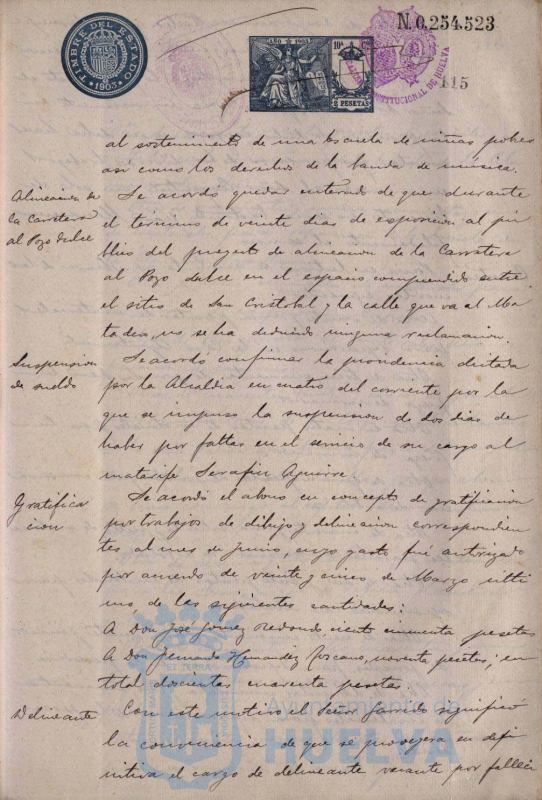 TIMBRE DEL ESTADO
1903
AÑO 1903
10ª
2 PESETAS
N.0,254,523
CONSTITUCIONAL DE HUELVA
115
al sostenimiento de una escuela de niñas pobres
así como los derechos de la banda de música.
Alineacion de
la Carretera
al Pozo dulce
Se acordó quedar enterado de que durante
el término de veinte dias de exposicion al pú
blico del proyecto de alineacion de la Carretera
al Pozo dulce en el espacio comprendido entre
el sitio de San Cristobal y la calle que va al Ma
tadero, no se ha deducido ninguna reclamacion.
Suspension
de sueldo
Se acordó confirmar la providencia dictada
por la Alcaldia en cuatro del corriente por la
que se impuso la suspension de dos dias de
haber por faltas en el servicio de su cargo al
matarife Serafin Aguirre.
Gratifica
cion
Se acordó el abono en concepto de gratificacion
por trabajos de dibujo y delineacion correspondien
tes al mes de Junio, cuyo gasto fué autorizado
por acuerdo de veinte y cinco de Marzo últi
mo, de las siguientes cantidades:
A Don José Gomez Redondo, ciento cincuenta pesetas
A Don Fernando Hernandez noventa pesetas; en
total doscientas cuarenta pesetas.
Delineante
Con este motivo el Señor Garrido significó
la conveniencia de que se proveyera en defi
nitiva el cargo de delineante vacante por falleci
Ayuntamiento de
HUELVA